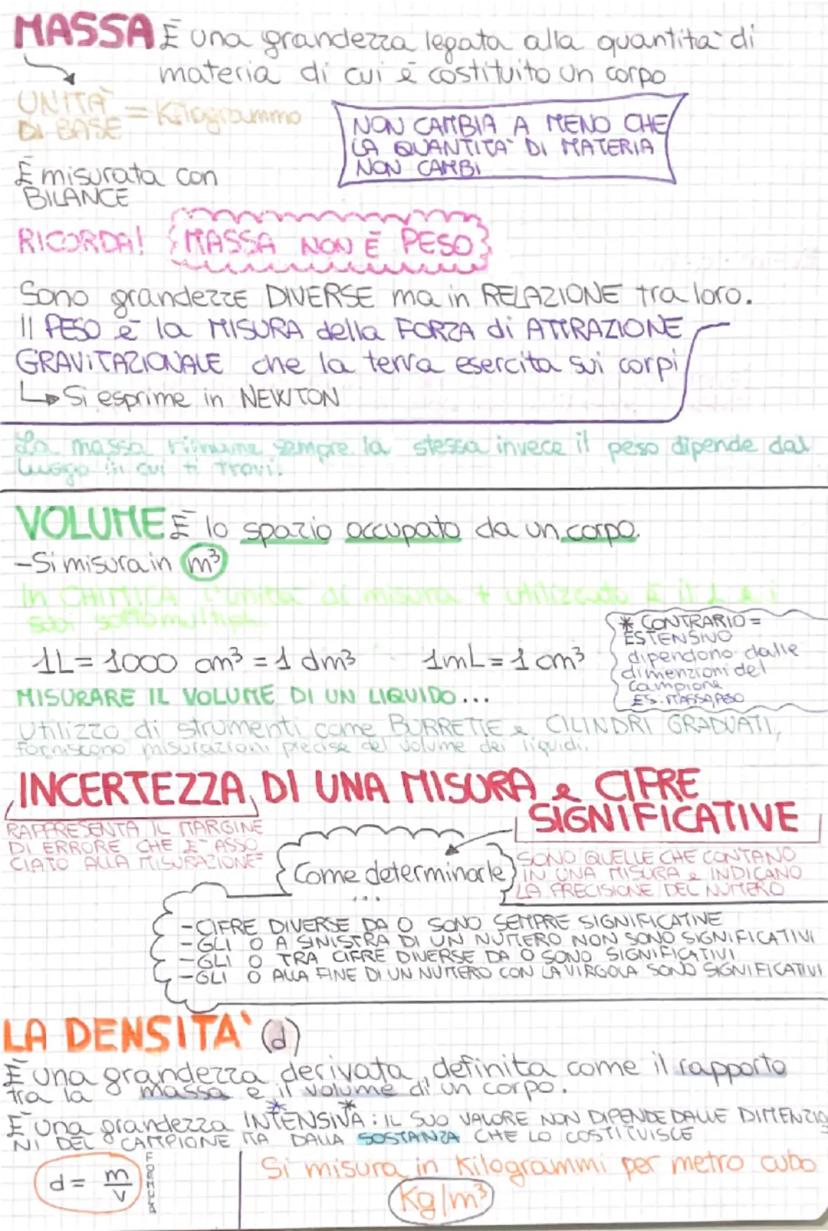 MASSA È una grandezza legata alla quantità di
materia di cui è costituito un corpo
UNITÀ
DI BASE = Kilogrammo
NON CAMBIA A MENO CHE
LA QUANTITÀ DI MATERIA
NON CAMBI
È misurata con
BILANCE
RICORDA! MASSA NON È PESO
Sono grandezze DIVERSE ma in RELAZIONE tra loro.
Il PESO è la MISURA della FORZA di ATTRAZIONE
GRAVITAZIONALE che la terra esercita sui corpi
↳ Si esprime in NEWTON
La massa rimane sempre la stessa invece il peso dipende dal
luogo in cui ti trovi.
VOLUME È lo spazio occupato da un corpo.
-Si misura in m³
In CHIMICA l'unità di misura + utilizzata è il L e i
suoi sottomultipli
1L = 1000 cm³ = 1 dm³ 1mL = 1 cm³
* CONTRARIO =
ESTENSIVO
dipendono dalle
dimenzioni del
campione
ES. MASSA, PESO
MISURARE IL VOLUME DI UN LIQUIDO...
Utilizzo di strumenti come BURRETTE e CILINDRI GRADUATI,
forniscono misurazioni precise del volume dei liquidi.
INCERTEZZA DI UNA MISURA e CIFRE
SIGNIFICATIVE
RAPPRESENTA IL MARGINE
DI ERRORE CHE E' ASSO
CIATO ALLA MISURAZIONE
Come determinarle
...
SONO QUELLE CHE CONTANO
IN UNA MISURA e INDICANO
LA PRECISIONE DEL NUMERO
-CIFRE DIVERSE DA 0 SONO SEMPRE SIGNIFICATIVE
-GLI 0 A SINISTRA DI UN NUMERO NON SONO SIGNIFICATIVI
-GLI 0 TRA CIFRE DIVERSE DA 0 SONO SIGNIFICATIVI
-GLI 0 ALLA FINE DI UN NUMERO CON LA VIRGOLA SONO SIGNIFICATIVI
LA DENSITA' (d)
È una grandezza derivata definita come il rapporto
tra la massa e il volume di un corpo.
È una grandezza INTENSIVA*: IL SUO VALORE NON DIPENDE DALLE DIMENZIO
NI DEL CAMPIONE MA DALLA SOSTANZA CHE LO COSTITUISCE
d = m/v FORMULA
Si misura in Kilogrammi per metro cubo
Kg/m³